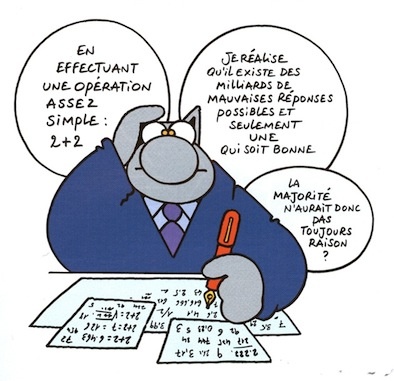 EN
EFFECTUANT
UNE OPÉRATION
ASSEZ
SIMPLE :
2+2
JE RÉALISE
QU'IL EXISTE DES
MILLIARDS DE
MAUVAISES RÉPONSES
POSSIBLES ET
SEULEMENT
UNE
QUI SOIT BONNE
LA
MAJORITÉ
N'AURAIT DONC
PAS
TOUJOURS
RAISON
?